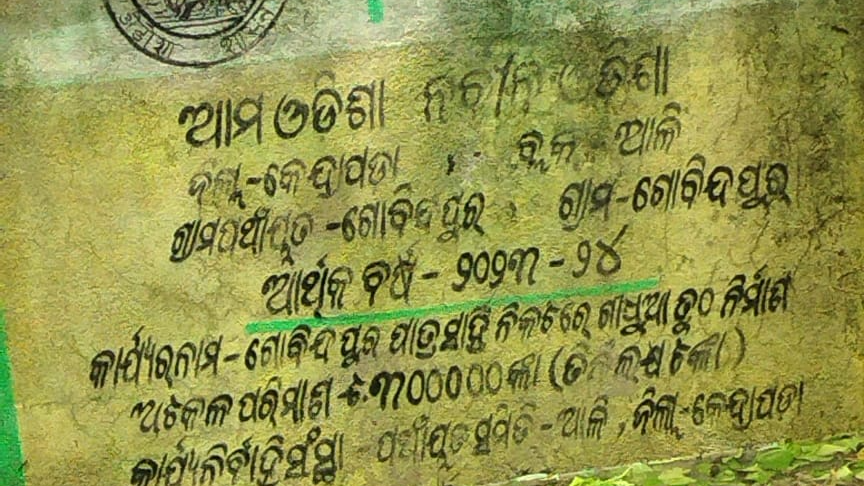 ଓଡ଼ିଶା
ଆମ ଓଡିଶା ନବୀନ ଓଡିଶା
ଜିଲ୍ଲା-କେନ୍ଦ୍ରାପଡା ବ୍ଲକ ଆଳି
ଗ୍ରାମପଞ୍ଚାୟତ -ଗୋବିନ୍ଦପୁର ଗ୍ରାମ-ଗୋବିନ୍ଦପୁର
ଆର୍ଥିକ ବର୍ଷ - ୨୦୨୩ - ୨୪
କାର୍ଯ୍ୟରନାମ - ଗୋବିନ୍ଦପୁର ପାତ୍ରସାହି ନିକଟରେ ଗାଧୁଆ ତୁଠ ନିର୍ମାଣ
ଅଟକଳ ପରିମାଣ -ଟ.୩୦୦୦୦୦ଙ୍କା (ତିନିଲକ୍ଷ ଟଙ୍କା)
କାର୍ଯ୍ୟନିର୍ବାହିସଂସ୍ଥା - ପଞ୍ଚାୟତସମିତି - ଆଳି , ଜିଲ୍ଲା-କେନ୍ଦ୍ରାପଡା